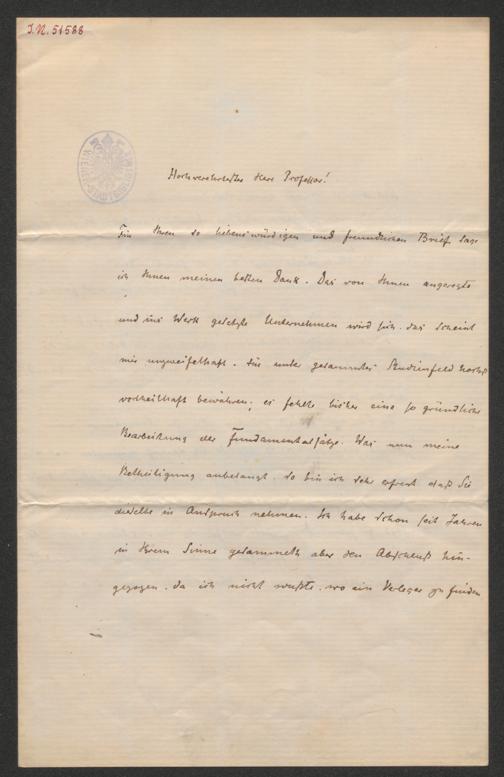 J.N. 51586
Hochverehrtester Herr Professor!
Für Ihren so liebenswürdigen und freundlichen Brief sage
ich Ihnen meinen besten Dank. Das von Ihnen angeregte
und ins Werk gesetzte Unternehmen wird sich, das scheint
mir unzweifelhaft, für unser gesammtes Studienfeld höchst
vortheilhaft bewähren; es fehlte bisher eine so gründliche
Bearbeitung der Fundamentalsätze. Was nun meine
Betheiligung anbelangt, so bin ich sehr erfreut daß Sie
dieselbe in Anspruch nehmen. Ich habe schon seit Jahren
in Ihrem Sinne gesammelt, aber den Abschluß hin-
gezogen, da ich nicht wußte, wo ein Verleger zu finden